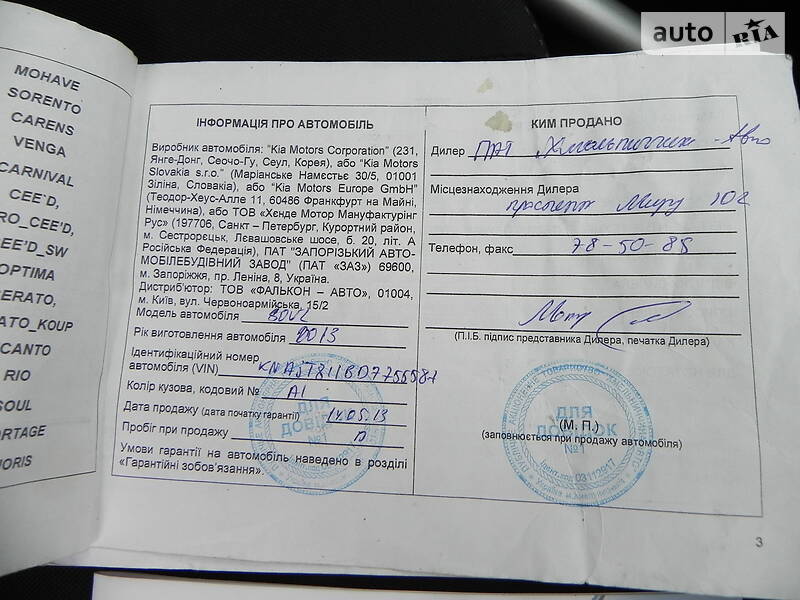 auto RIA
MOHAVE
SORENTO
CARENS
VENGA
CARNIVAL
CEE'D,
RO_CEE'D,
EE'D_SW
OPTIMA
ERATO,
ATO_KOUP
CANTO
RIO
SOUL
ORTAGE
ORIS
ІНФОРМАЦІЯ ПРО АВТОМОБІЛЬ
Виробник автомобіля: "Kia Motors Corporation" (231,
Янге-Донг, Сеочо-Гу, Сеул, Корея), або "Kia Motors
Slovakia s.r.o." (Маріанське Намєстіє 30/5, 01001
Зіліна, Словакія), або "Kia Motors Europe GmbH"
(Теодор-Хеус-Алле 11, 60486 Франкфурт на Майні,
Німеччина), або ТОВ «Хєнде Мотор Мануфактурінг
Рус» (197706, Санкт – Петербург, Курортний район,
м. Сестрорєцьк, Лєвашовське шосе, б. 20, літ. А
Російська Федерація), ПАТ "ЗАПОРІЗЬКИЙ АВТО-
МОБІЛЕБУДІВНИЙ ЗАВОД" (ПАТ «ЗАЗ») 69600,
м. Запоріжжя, пр. Леніна, 8, Україна.
Дистриб'ютор: ТОВ «ФАЛЬКОН – АВТО», 01004,
м. Київ, вул. Червоноармійська, 15/2
Модель автомобіля SOUL
Рік виготовлення автомобіля 2013
Ідентифікаційний номер
автомобіля (VIN)
Колір кузова, кодовий № A1
Дата продажу (дата початку гарантії) 14.05.13
Пробіг при продажу
Умови гарантії на автомобіль наведено в розділі
«Гарантійні зобов'язання».
КИМ ПРОДАНО
Дилер ПАТ Хмельниччина - Авто
Місцезнаходження Дилера
проспект Миру 102
Телефон, факс 78-50-85
(П.І.Б. підпис представника Дилера, печатка Дилера)
(М. П.)
(заповнюється при продажу автомобіля)
ДЛЯ
ДОВІДОК
№1
ідент. код 03112917
3